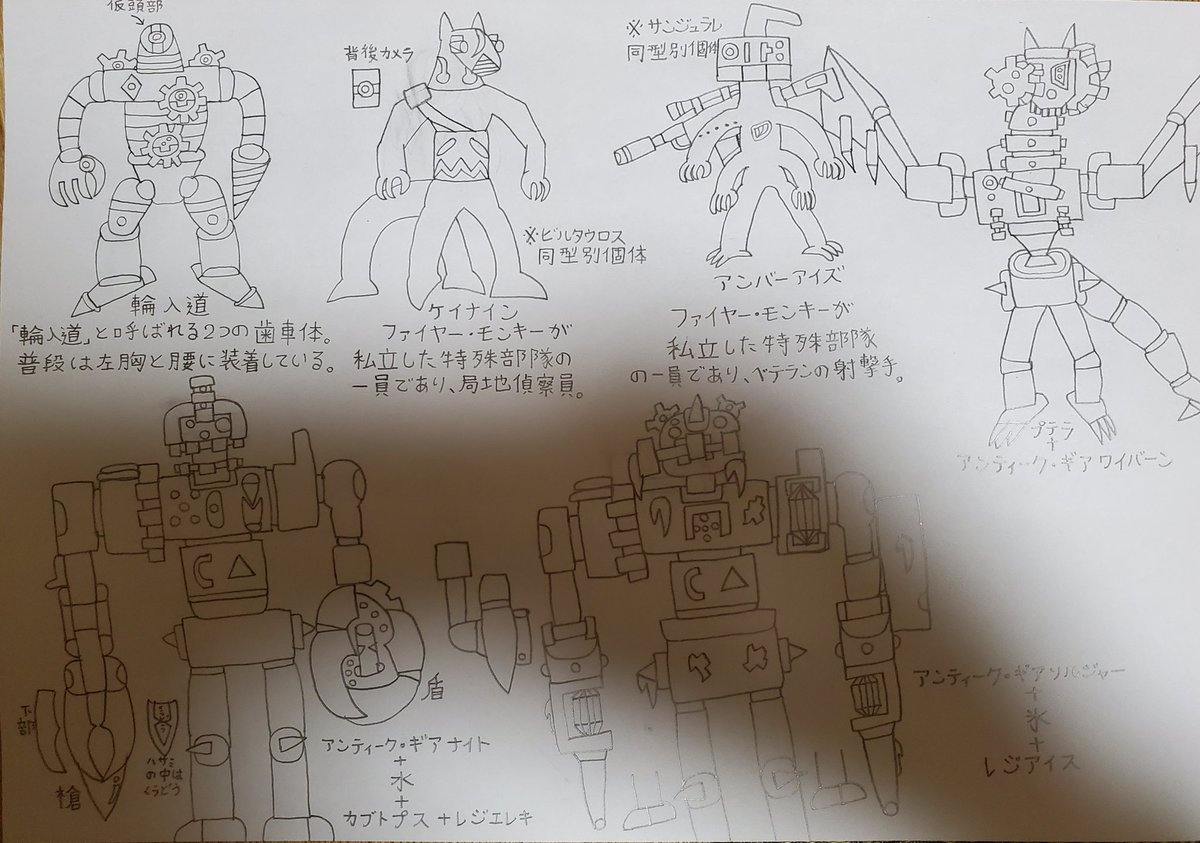 仮頭部
輪入道
「輪入道」と呼ばれる2つの歯車体。
普段は左胸と腰に装着している。
背後カメラ
※ビルタウロス
同型別個体
ケイナイン
ファイヤー・モンキーが
私立した特殊部隊の
一員であり、局地偵察員。
※サンジュラレ
同型別個体
アンバーアイズ
ファイヤー・モンキーが
私立した特殊部隊
の一員であり、ベテランの射撃手。
プテラ
+
アンティーク・ギアワイバーン
下部
槍
ハサミ
の中は
くうどう
盾
アンティーク・ギアナイト
+
水
+
カブトプス+レジエレキ
アンティーク・ギアソルジャー
+
氷
+
レジアイス